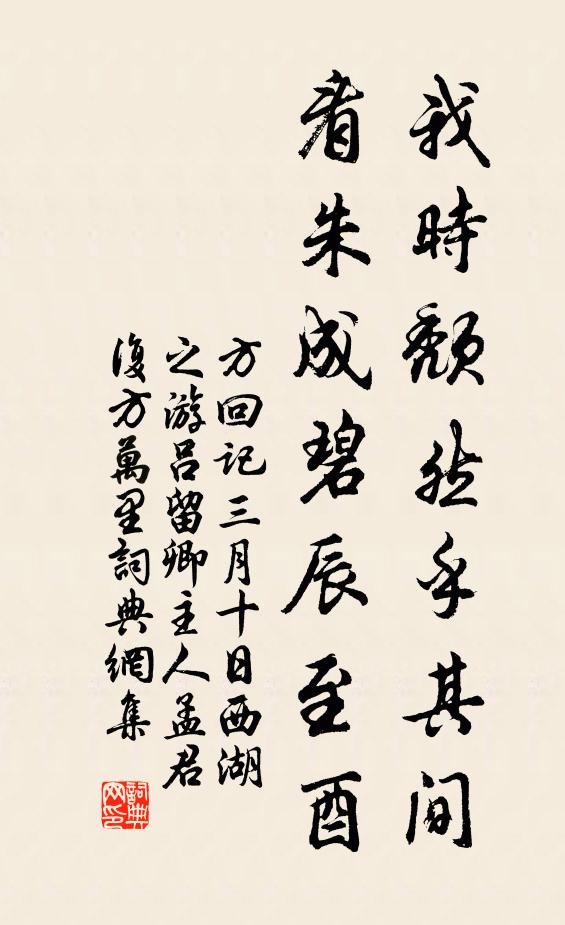 我時頹然乎其間
看朱成碧辰至酉
方回記三月十日西湖
之游吕留卿主人孟君
復方萬里詞典網集
詞典
网印